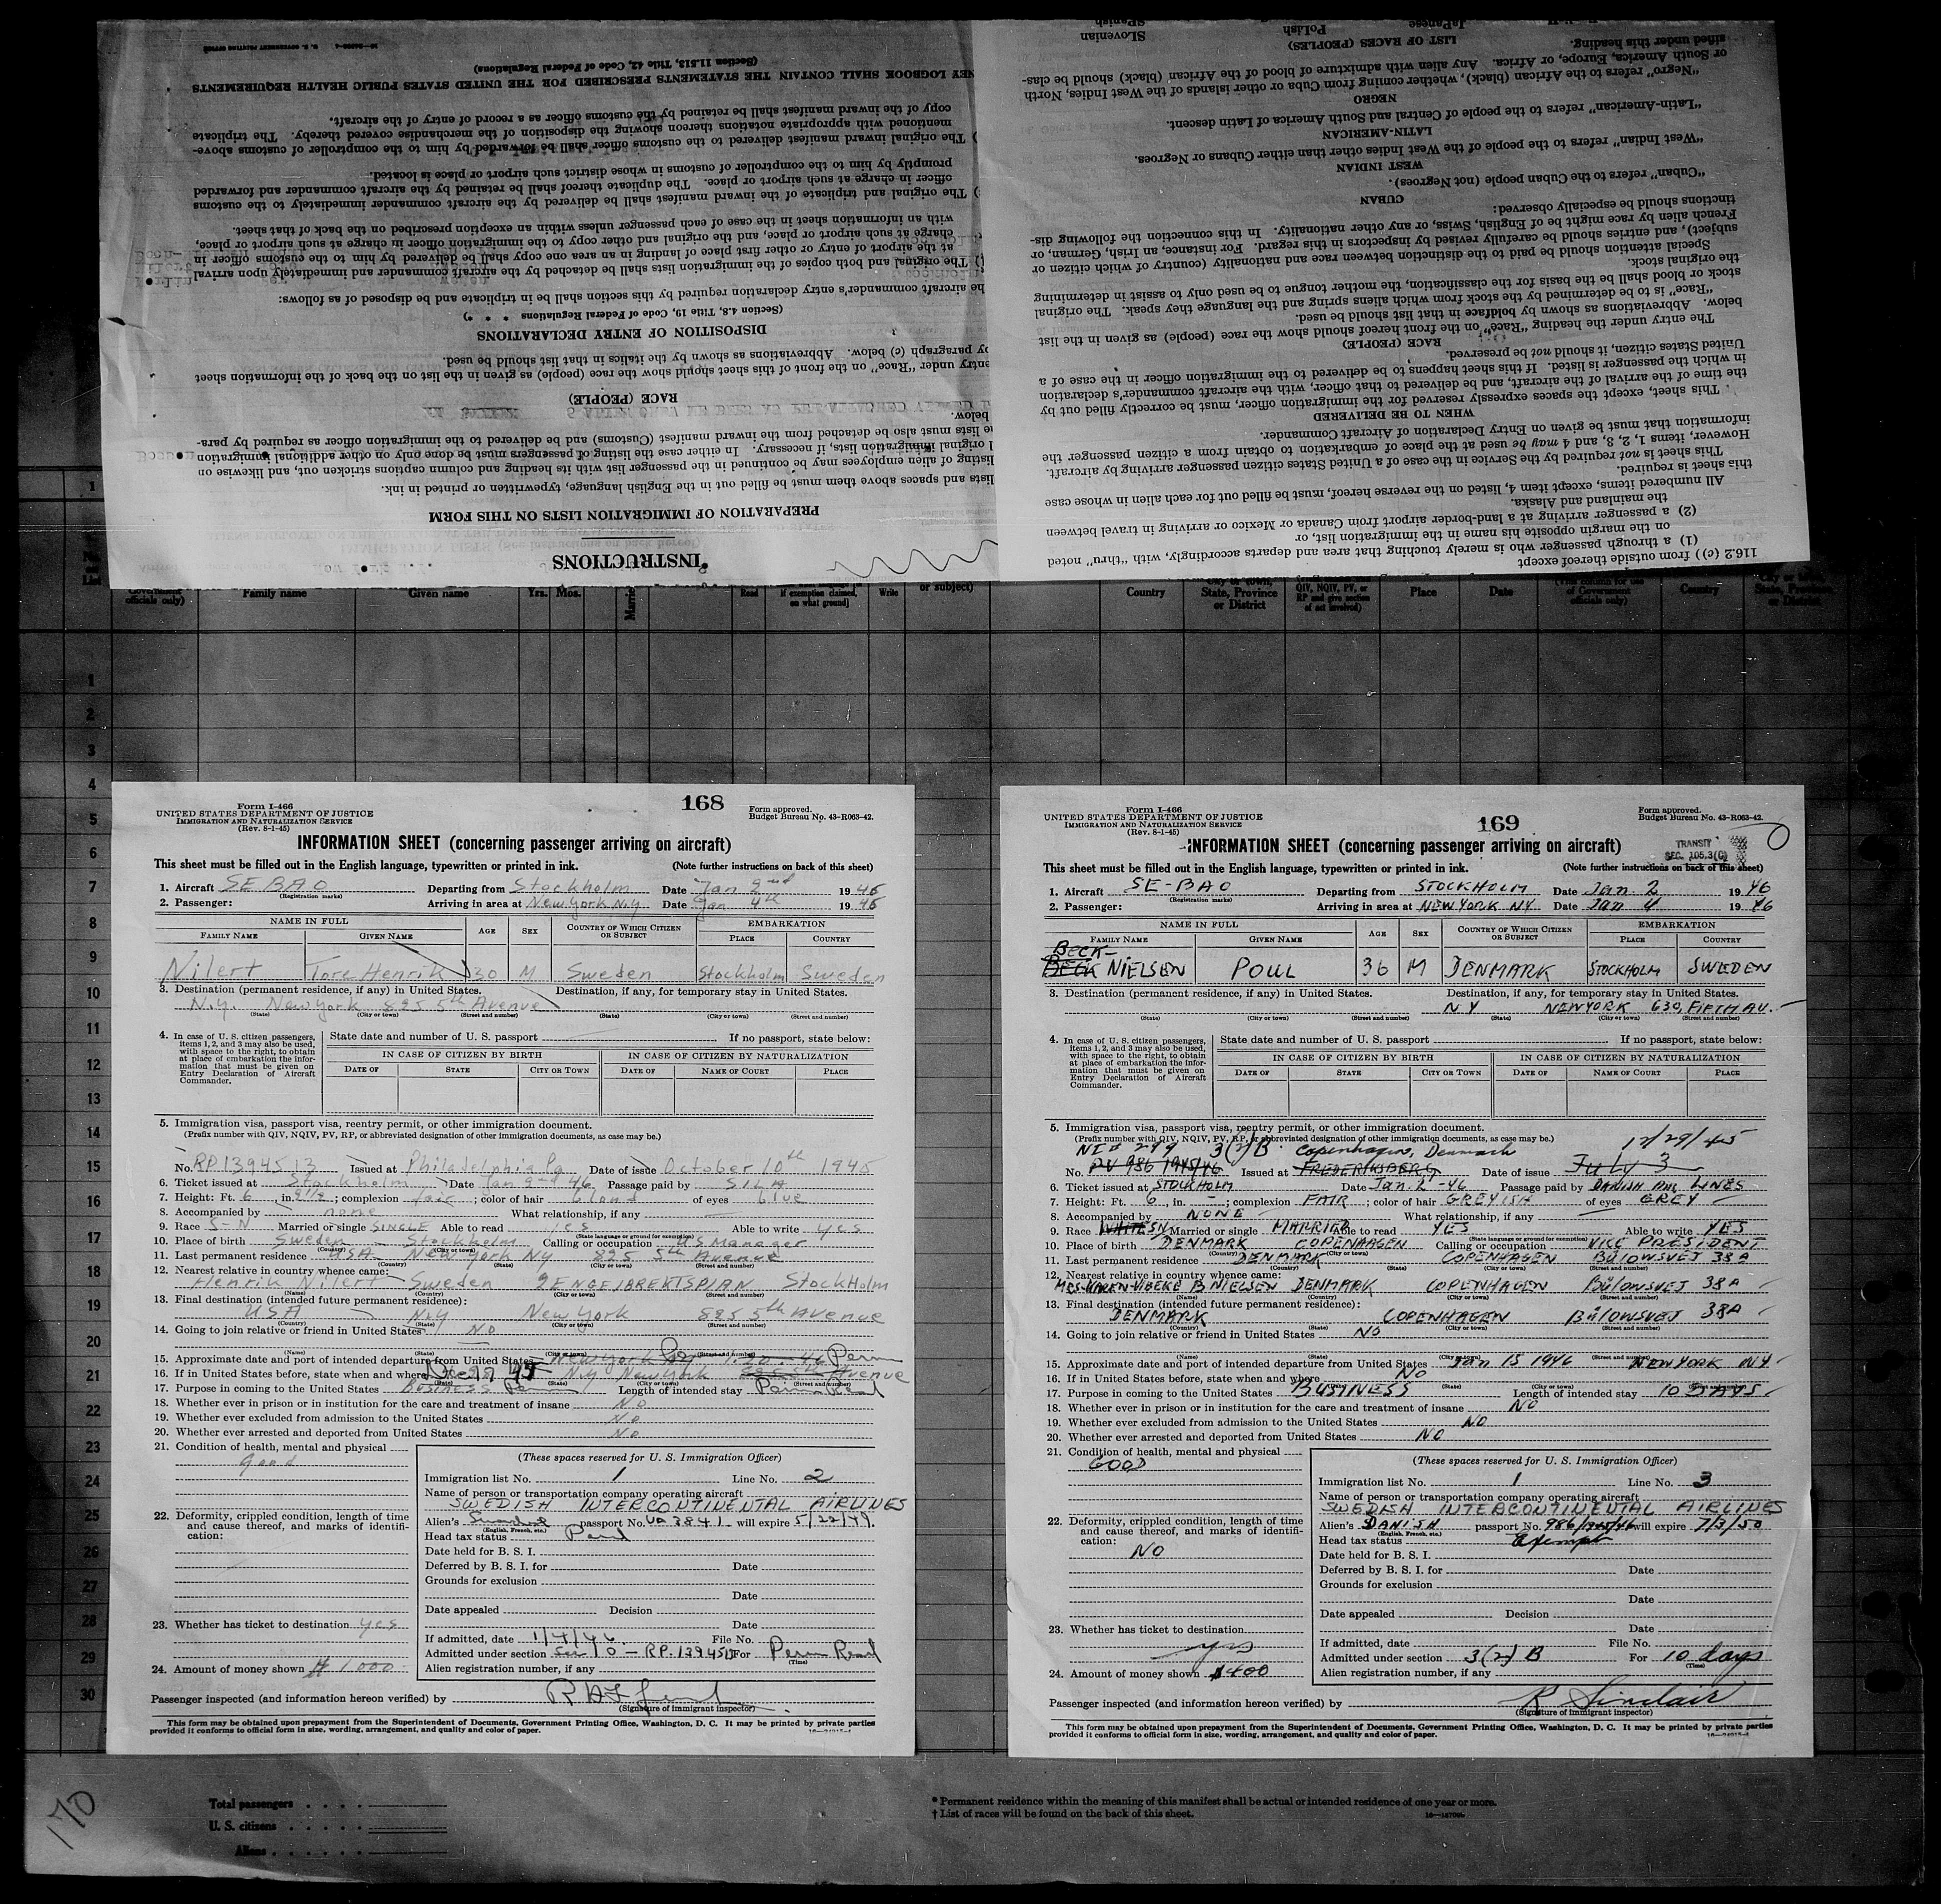 16—24023-4 U. S. GOVERNMENT PRINTING OFFICE
(Section 11.513, Title 42, Code of Federal Regulations)
LOGBOOK SHALL CONTAIN THE STATEMENTS PRESCRIBED FOR THE UNITED STATES PUBLIC HEALTH REQUIREMENTS
copy of the inward manifest shall be retained by the customs officer as a record of entry of the aircraft.
mentioned with appropriate notations thereon showing the disposition of the merchandise covered thereby. The triplicate
The original inward manifest delivered to the customs officer shall be forwarded by him to the comptroller of customs above-
promptly by him to the comptroller of customs in whose district such airport or place is located.
officer in charge at such airport or place. The duplicate thereof shall be retained by the aircraft commander and forwarded
The original and triplicate of the inward manifest shall be delivered by the aircraft commander immediately to the customs
with an information sheet in the case of each passenger unless within an exception prescribed on the back of that sheet.
charge at such airport or place, and the original and other copy to the immigration officer in charge at such airport or place,
at the airport of entry or other first place of landing in an area one copy shall be delivered by him to the customs officer in
The original and both copies of the immigration lists shall be detached by the aircraft commander and immediately upon arrival
he aircraft commander's entry declaration required by this section shall be in triplicate and be disposed of as follows:
(Section 4.8, Title 19, Code of Federal Regulations * * *)
DISPOSITION OF ENTRY DECLARATIONS
by paragraph (c) below. Abbreviations as shown by the italics in that list should be used.
entry under "Race" on the front of this sheet should show the race (people) as given in the list on the back of the information sheet
RACE (PEOPLE)
below.
lists must also be detached from the inward manifest (Customs) and be delivered to the immigration officer as required by para-
original immigration lists, if necessary. In either case the listing of passengers must be done only on other additional immigration
listing of alien employees may be continued in the passenger list with its heading and column captions stricken out, and likewise on
lists and spaces above them must be filled out in the English language, typewritten or printed in ink.
PREPARATION OF IMMIGRATION LISTS ON THIS FORM
INSTRUCTIONS
Slovenian
Spanish
Polish
Japanese
LIST OF RACES (PEOPLES)
sified under this heading.
or South America, Europe, or Africa. Any alien with admixture of blood of the African (black) should be clas-
"Negro" refers to the African (black), whether coming from Cuba or other islands of the West Indies, North
NEGRO
"Latin-American" refers to the people of Central and South America of Latin descent.
LATIN-AMERICAN
"West Indian" refers to the people of the West Indies other than either Cubans or Negroes.
WEST INDIAN
"Cuban" refers to the Cuban people (not Negroes).
CUBAN
tinctions should be especially observed:
French alien by race might be of English, Swiss, or any other nationality. In this connection the following dis-
subject), and entries should be carefully revised by inspectors in this regard. For instance, an Irish, German, or
Special attention should be paid to the distinction between race and nationality (country of which citizen or
the original stock.
stock or blood shall be the basis for the classification, the mother tongue to be used only to assist in determining
"Race" is to be determined by the stock from which aliens spring and the language they speak. The original
below. Abbreviations as shown by boldface in that list should be used.
The entry under the heading "Race" on the front hereof should show the race (people) as given in the list
RACE (PEOPLE)
United States citizen, it should not be preserved.
in which the passenger is listed. If this sheet happens to be delivered to the immigration officer in the case of a
the time of the arrival of the aircraft, and be delivered to that officer, with the aircraft commander's declaration
This sheet, except the spaces expressly reserved for the immigration officer, must be correctly filled out by
WHEN TO BE DELIVERED
information that must be given on Entry Declaration of Aircraft Commander.
However, items 1, 2, 3, and 4 may be used at the place of embarkation to obtain from a citizen passenger the
This sheet is not required by the Service in the case of a United States citizen passenger arriving by aircraft.
this sheet is required.
All numbered items, except item 4, listed on the reverse hereof, must be filled out for each alien in whose case
the mainland and Alaska.
(2) a passenger arriving at a land-border airport from Canada or Mexico or arriving in travel between
on the margin opposite his name in the immigration list, or
(1) a through passenger who is merely touching that area and departs accordingly, with "thru" noted
116.2 (c)) from outside thereof except
officials only) Family name Given name Yrs. Mos. Read if exemption claimed, on what ground] Write or subject)
Country State, Province or District QIV, NQIV, PV, or RP and give section of act involved) Place Date of Government officials only) Country State, Province or District
Form I-466
UNITED STATES DEPARTMENT OF JUSTICE
IMMIGRATION AND NATURALIZATION SERVICE
(Rev. 8-1-45)
168
Form approved.
Budget Bureau No. 43-R063-42.
INFORMATION SHEET (concerning passenger arriving on aircraft)
This sheet must be filled out in the English language, typewritten or printed in ink. (Note further instructions on back of this sheet)
1. Aircraft SEBAO (Registration marks) Departing from Stockholm Date Jan 2nd 1946
2. Passenger: Arriving in area at New York N.Y. Date Jan 4th 1946
NAME IN FULL AGE SEX COUNTRY OF WHICH CITIZEN OR SUBJECT EMBARKATION
FAMILY NAME GIVEN NAME PLACE COUNTRY
Nilert Tore Henrik 30 M Sweden Stockholm Sweden
3. Destination (permanent residence, if any) in United States. Destination, if any, for temporary stay in United States.
N.Y. New York 825 5th Avenue
(State) (City or town) (Street and number) (State) (City or town) (Street and number)
4. In case of U. S. citizen passengers, items 1, 2, and 3 may also be used, with space to the right, to obtain at place of embarkation the information that must be given on Entry Declaration of Aircraft Commander.
State date and number of U. S. passport If no passport, state below:
IN CASE OF CITIZEN BY BIRTH IN CASE OF CITIZEN BY NATURALIZATION
DATE OF STATE CITY OR TOWN DATE OF NAME OF COURT PLACE
5. Immigration visa, passport visa, reentry permit, or other immigration document.
(Prefix number with QIV, NQIV, PV, RP, or abbreviated designation of other immigration documents, as case may be.)
No. RP1394513 Issued at Philadelphia Pa Date of issue October 10th 1945
6. Ticket issued at Stockholm Date Jan 2nd 46 Passage paid by SILA
7. Height: Ft. 6, in. 2½; complexion fair; color of hair blond of eyes blue
8. Accompanied by none What relationship, if any
9. Race S-N Married or single SINGLE Able to read yes Able to write yes
(State language or ground for exemption)
10. Place of birth Sweden Stockholm Calling or occupation U.S. Manager
(Country) (City or town)
11. Last permanent residence USA New York NY 825 5th Avenue
(Country) (City or town) (Street and number)
12. Nearest relative in country whence came:
Henrik Nilert Sweden 2 ENGELBREKTSPLAN StockHolm
(Name) (Country) (City or town)
13. Final destination (intended future permanent residence):
USA N.Y New York 825 5th Avenue
(Country) (State) (City or town) (Street and number)
14. Going to join relative or friend in United States NO
(Name) (State) (City or town) (Street and number)
15. Approximate date and port of intended departure from United States New York Perm
16. If in United States before, state when and where Dec 27 45 N.y New York Avenue
17. Purpose in coming to the United States BUSINESS Length of intended stay Perm Resd
18. Whether ever in prison or in institution for the care and treatment of insane NO
19. Whether ever excluded from admission to the United States NO
20. Whether ever arrested and deported from United States NO
21. Condition of health, mental and physical
good
22. Deformity, crippled condition, length of time and cause thereof, and marks of identification:
23. Whether has ticket to destination yes
24. Amount of money shown $1000
(These spaces reserved for U. S. Immigration Officer)
Immigration list No. 1 Line No. 2
Name of person or transportation company operating aircraft
SWEDISH INTERCONTINENTAL AIRLINES
Alien's Swedish passport No. Ua 3841 will expire 5/22/47
(English, French, etc.)
Head tax status Paid
Date held for B. S. I.
Deferred by B. S. I. for Date
Grounds for exclusion
Date
Date appealed Decision
Date
If admitted, date 1/4/46 File No.
Admitted under section Sec 10 - RP. 1394513 For Perm Resd
(Time)
Alien registration number, if any
Passenger inspected (and information hereon verified) by
(Signature of immigrant inspector)
This form may be obtained upon prepayment from the Superintendent of Documents, Government Printing Office, Washington, D. C. It may be printed by private parties
provided it conforms to official form in size, wording, arrangement, and quality and color of paper.
Form I-466
UNITED STATES DEPARTMENT OF JUSTICE
IMMIGRATION AND NATURALIZATION SERVICE
(Rev. 8-1-45)
169
Form approved.
Budget Bureau No. 43-R063-42.
TRANSIT
SEC. 105.3(C)
INFORMATION SHEET (concerning passenger arriving on aircraft)
This sheet must be filled out in the English language, typewritten or printed in ink. (Note further instructions on back of this sheet)
1. Aircraft SE-BAO (Registration marks) Departing from STOCKHOLM Date Jan. 2 1946
2. Passenger: Arriving in area at NEW YORK NY Date Jan 4 1946
NAME IN FULL AGE SEX COUNTRY OF WHICH CITIZEN OR SUBJECT EMBARKATION
FAMILY NAME GIVEN NAME PLACE COUNTRY
BECK-
BECK NIELSEN POUL 36 M DENMARK STOCKHOLM SWEDEN
3. Destination (permanent residence, if any) in United States. Destination, if any, for temporary stay in United States.
N Y NEWYORK 630, FIFTH AV.
(State) (City or town) (Street and number) (State) (Street and number)
4. In case of U. S. citizen passengers, items 1, 2, and 3 may also be used, with space to the right, to obtain at place of embarkation the information that must be given on Entry Declaration of Aircraft Commander.
State date and number of U. S. passport If no passport, state below:
IN CASE OF CITIZEN BY BIRTH IN CASE OF CITIZEN BY NATURALIZATION
DATE OF STATE CITY OR TOWN DATE OF NAME OF COURT PLACE
5. Immigration visa, passport visa, reentry permit, or other immigration document.
(Prefix number with QIV, NQIV, PV, RP, or abbreviated designation of other immigration documents, as case may be.)
NI# 299 3(2)B Copenhagen, Denmark 12/29/45
No. PV 986 1945/46 Issued at FREDERIKSBERG Date of issue July 3
6. Ticket issued at STOCKHOLM Date Jan. 2 -46 Passage paid by DANISH AIR LINES
7. Height: Ft. 6, in. -; complexion FAIR; color of hair GREYISH of eyes GREY
8. Accompanied by NONE What relationship, if any
9. Race WHITE SN Married or single MARRIED Able to read YES Able to write YES
(State language or ground for exemption)
10. Place of birth DENMARK COPENHAGEN Calling or occupation VICE PRESIDENT
11. Last permanent residence DENMARK COPENHAGEN BÜLOWSVEJ 38A
12. Nearest relative in country whence came:
MRS. KAREN-VIBEKE B NIELSEN DENMARK COPENHAGEN BÜLOWSVEJ 38A
(Name) (Country) (City or town) (Street and number)
13. Final destination (intended future permanent residence):
DENMARK COPENHAGEN BÜLOWSVEJ 38A
(Country) (State) (City or town) (Street and number)
14. Going to join relative or friend in United States NO
(Name) (State) (City or town) (Street and number)
15. Approximate date and port of intended departure from United States Jan 15 1946 NEW YORK NY
16. If in United States before, state when and where NO
17. Purpose in coming to the United States BUSINESS Length of intended stay 10 DAYS
18. Whether ever in prison or in institution for the care and treatment of insane NO
19. Whether ever excluded from admission to the United States NO
20. Whether ever arrested and deported from United States NO
21. Condition of health, mental and physical
GOOD
22. Deformity, crippled condition, length of time and cause thereof, and marks of identification:
NO
23. Whether has ticket to destination
yes
24. Amount of money shown $400
(These spaces reserved for U. S. Immigration Officer)
Immigration list No. 1 Line No. 3
Name of person or transportation company operating aircraft
SWEDISH INTERCONTINENTAL AIRLINES
Alien's DANISH passport No. 986/1945/46 will expire 7/3/50
(English, French, etc.)
Head tax status Exempt
Date held for B. S. I.
Deferred by B. S. I. for Date
Grounds for exclusion
Date
Date appealed Decision
Date
If admitted, date File No.
Admitted under section 3(2) B For 10 days
(Time)
Alien registration number, if any
Passenger inspected (and information hereon verified) by R Sinclair
(Signature of immigrant inspector)
This form may be obtained upon prepayment from the Superintendent of Documents, Government Printing Office, Washington, D. C. It may be printed by private parties
provided it conforms to official form in size, wording, arrangement, and quality and color of paper.
170
Total passengers
U. S. citizens
Aliens
* Permanent residence within the meaning of this manifest shall be actual or intended residence of one year or more.
† List of races will be found on the back of this sheet.